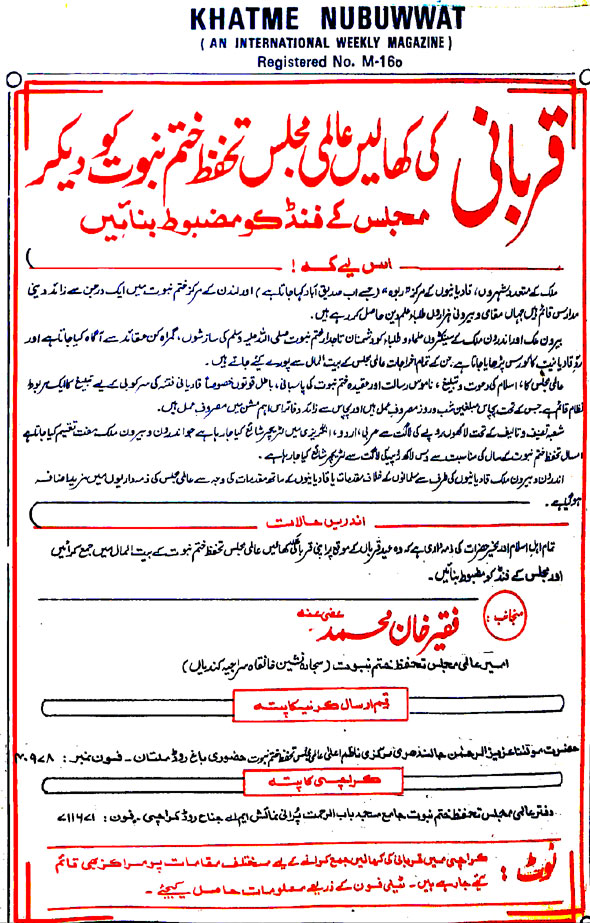 KHATME NUBUWWAT
( AN INTERNATIONAL WEEKLY MAGAZINE )
Registered No. M-160
قربانی کی کھالیں عالمی مجلس تحفظ ختم نبوت کو دیکر
مجلس کے فنڈ کو مضبوط بنائیں
اس لیے کہ !
ملک کے متعدد شہروں، قادیانیوں کے مرکز "ربوہ" (جسے اب صدیق آباد کہا جاتا ہے) اور لندن کے مرکز ختم نبوت میں ایک درجن سے زائد دینی
مدارس قائم ہیں جہاں مقامی و بیرونی ہزاروں طلباء علم دین حاصل کر رہے ہیں۔
بیرون ملک اور اندرون ملک کے سینکڑوں علماء و طلباء کو دشمنان تاجدار ختم نبوت صلی اللہ علیہ وسلم کی سازشوں، گمراہ کن عقائد سے آگاہ کیا جاتا ہے اور
ردّ قادیانیت کا کورس پڑھایا جاتا ہے، جن کے تمام اخراجات عالمی مجلس کے بیت المال سے پورے کیئے جاتے ہیں۔
عالمی مجلس کا، اسلام کی دعوت و تبلیغ، ناموس رسالت اور عقیدہ ختم نبوت کی پاسبانی، باطل قوتوں خصوصاً قادیانی فتنہ کی سرکوبی کے لیے تبلیغ کا ایک مربوط
نظام قائم ہے جس کے تحت پچاس مبلغین شب و روز مصروف عمل ہیں اور پچاس سے زائد دفاتر اس اہم مشن میں مصروف عمل ہیں۔
شعبہ تصنیف و تالیف کے تحت لاکھوں روپے کی لاگت سے عربی، اردو، انگریزی میں لٹریچر شائع کیا جا رہا ہے جو اندرون و بیرون ملک مفت تقسیم کیا جاتا ہے
امسال تحفظ ختم نبوت کے سال کی مناسبت سے بیس لاکھ روپیہ کی لاگت سے لٹریچر شائع کیا جا رہا ہے۔
اندرون و بیرون ملک قادیانیوں کی طرف سے مسلمانوں کے خلاف مقدمات یا قادیانیوں کے ساتھ مقدمات کی وجہ سے عالمی مجلس کی ذمہ داریوں میں مزید اضافہ
ہو گیا ہے۔
اندریں حالات
تمام اہل اسلام اور مخیر حضرات کی ذمہ داری ہے کہ وہ عید قربان کے موقع پر اپنی قربانی کی کھالیں عالمی مجلس تحفظ ختم نبوت کے بیت المال میں جمع کرائیں
اور مجلس کے فنڈ کو مضبوط بنائیں۔
منجانب : فقیر خان محمد عفی عنہ
امیر عالمی مجلس تحفظ ختم نبوت (سجادہ نشین خانقاہ سراجیہ کندیاں)
رقم ارسال کرنیکا پتہ
حضرت مولانا عزیز الرحمٰن جالندھری مرکزی ناظم اعلیٰ عالمی مجلس تحفظ ختم نبوت حضوری باغ روڈ ملتان - فون نمبر : ۴۰۹۷۸
کراچی کا پتہ
دفتر عالمی مجلس تحفظ ختم نبوت جامع مسجد باب الرحمت پرانی نمائش ایم اے جناح روڈ کراچی - فون : ۷۱۱۶۷۱
نوٹ : کراچی میں قربانی کی کھالیں جمع کرانے کے لیے مختلف مقامات پر مراکز بھی قائم
کئے جا رہے ہیں۔ ٹیلی فون کے ذریعے معلومات حاصل کیجئے۔